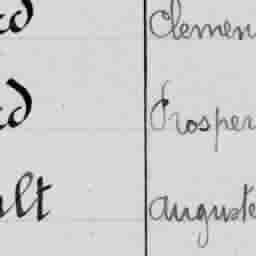 cd Clemen
cd Prosper
ult Auguste